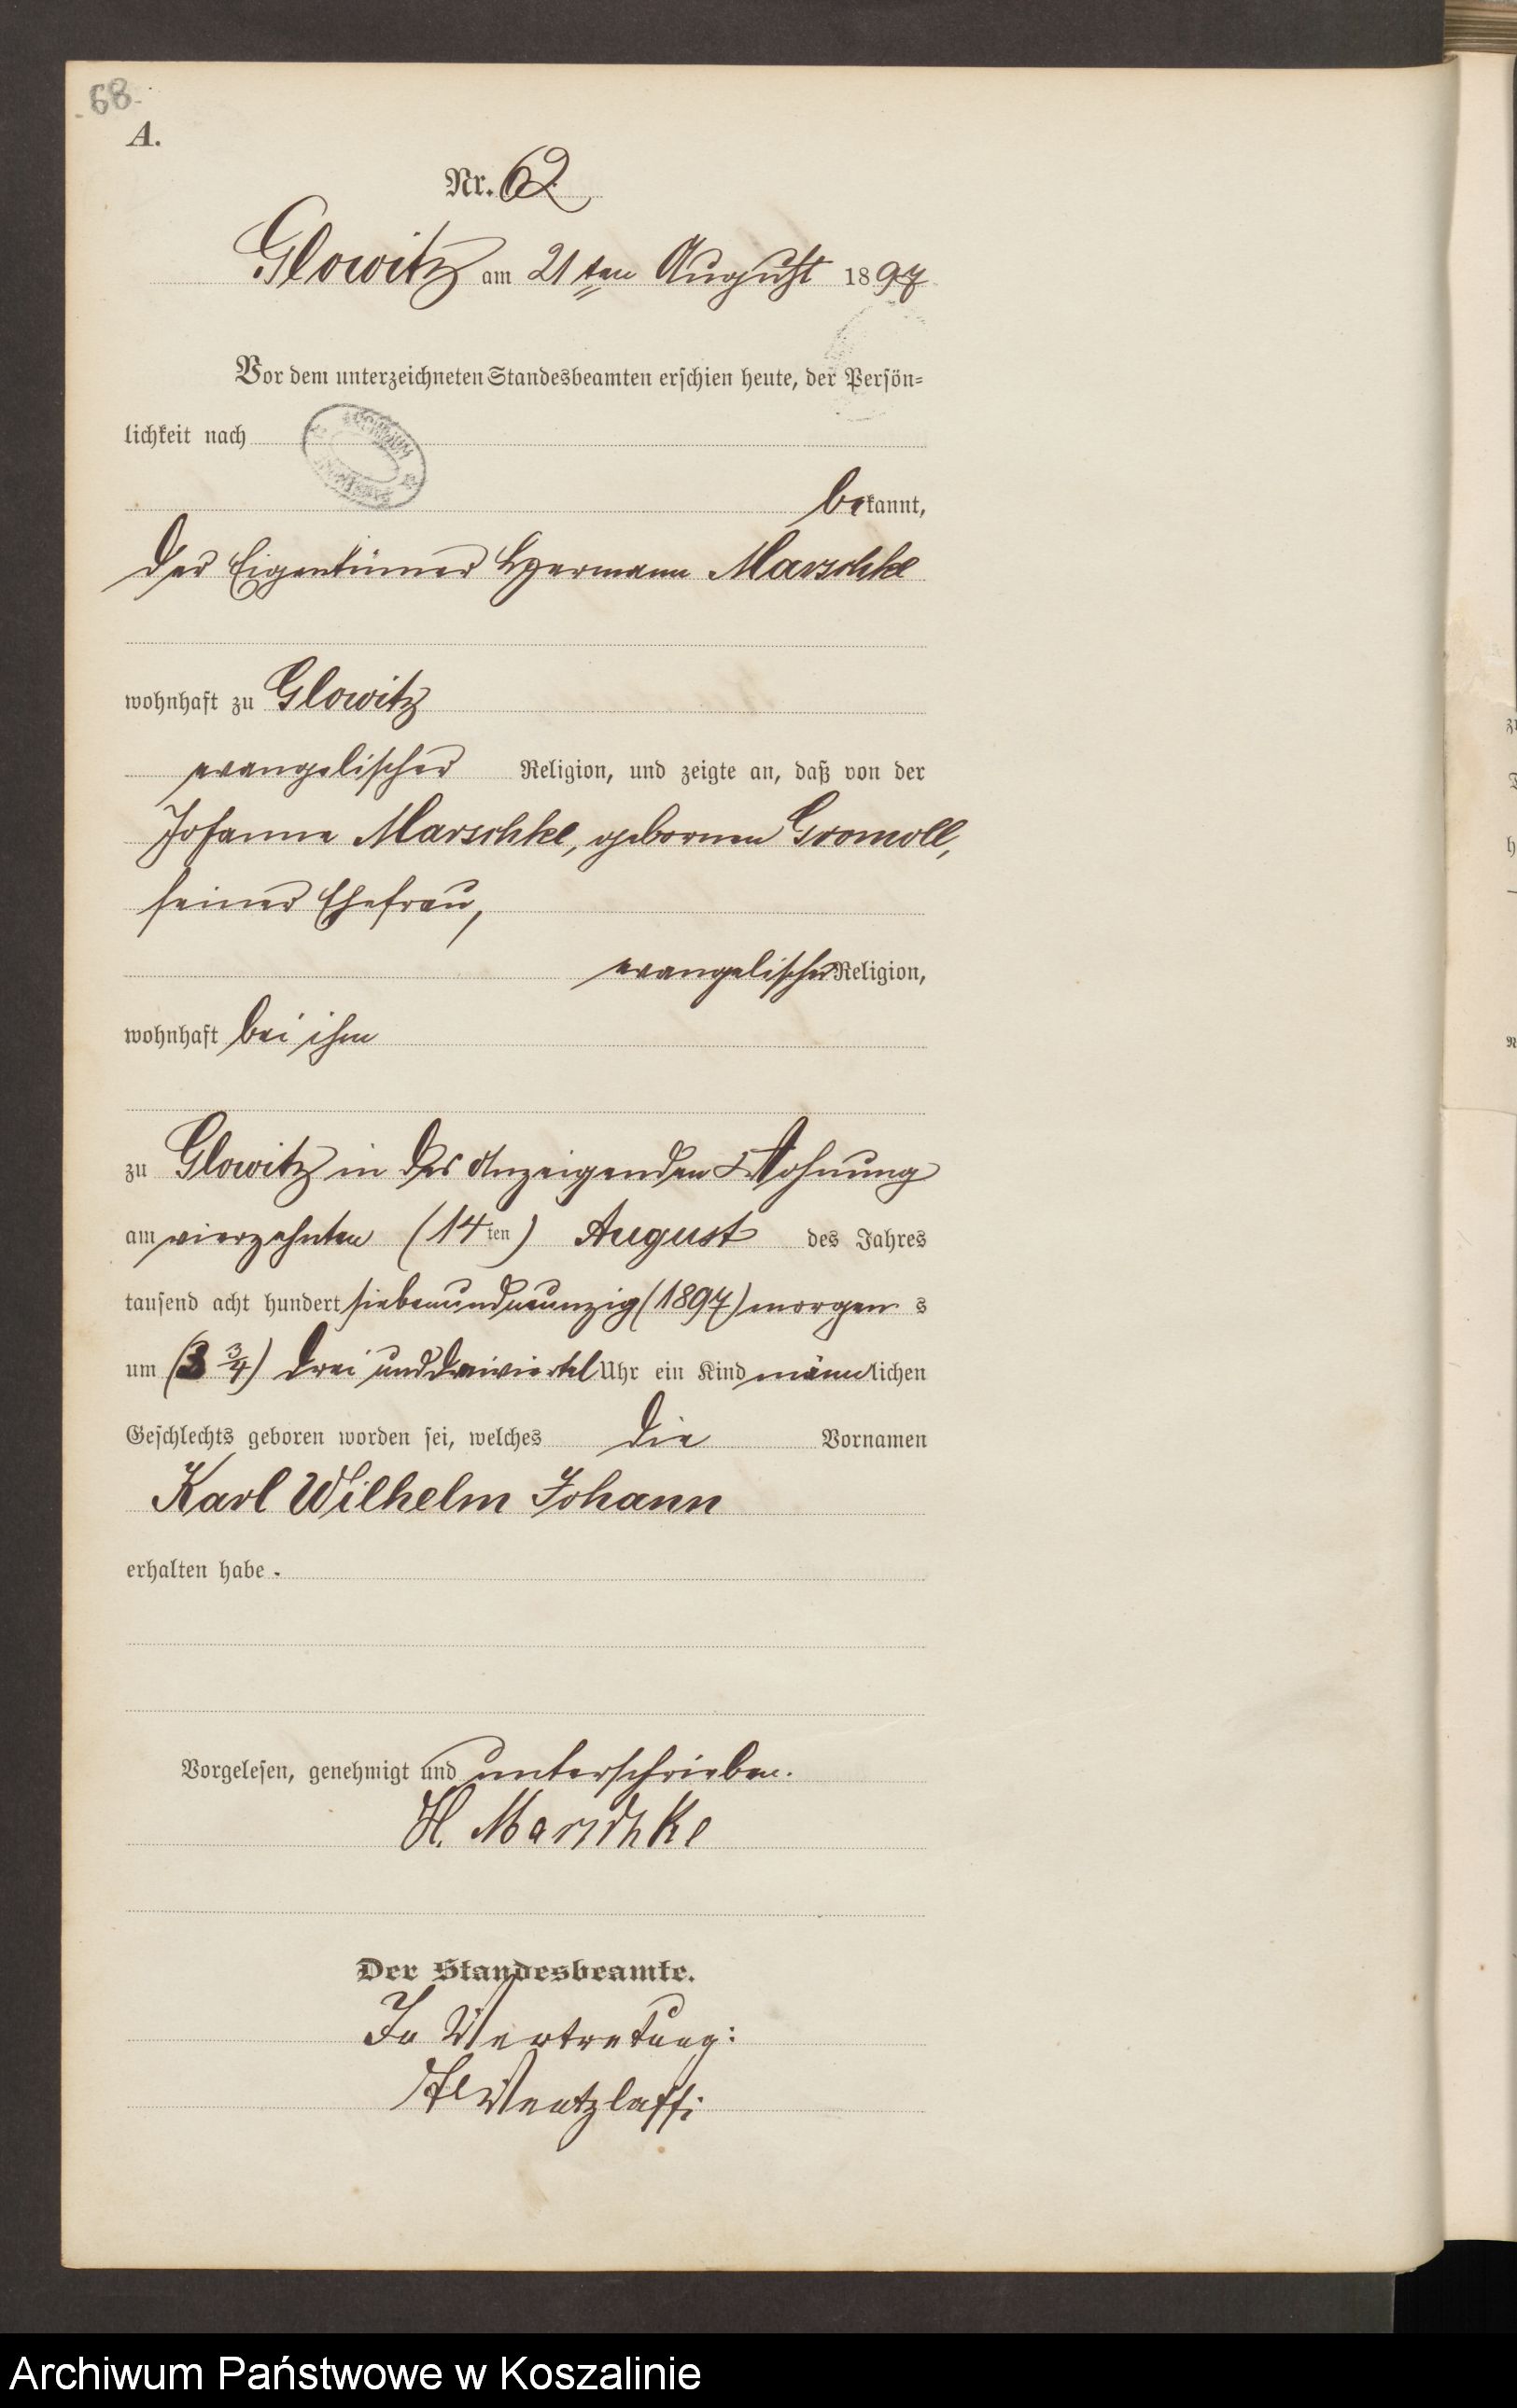 68.
A.
Nr. 62.
Glowitz am 21ten August 1897
Vor dem unterzeichneten Standesbeamten erschien heute, der Persön=
lichkeit nach
bekannt,
der Eigentümer Hermann Marschke
wohnhaft zu Glowitz
evangelischer Religion, und zeigte an, daß von der
Johanne Marschke, gebornen Gromoll,
seiner Ehefrau,
evangelischer Religion,
wohnhaft bei ihm
zu Glowitz in des Anzeigenden Wohnung
am vierzehnten (14ten) August des Jahres
tausend acht hundert siebenundneunzig (1897) morgens
um (3 3/4) drei und dreiviertel Uhr ein Kind männlichen
Geschlechts geboren worden sei, welches die Vornamen
Karl Wilhelm Johann
erhalten habe.
Vorgelesen, genehmigt und unterschrieben.
H. Marschke
Der Standesbeamte.
In Vertretung:
Wentzlaff
Archiwum Państwowe w Koszalinie